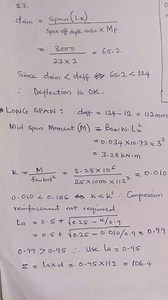 23.
dmin = Span (Lx) / Span eff depth ratio × MF
= 3000 / 23 × 2 = 65.2
Since dmin < deff ⇒ 65.2 < 124
∴ Deflection is OK.
* LONG SPAN: deff = 124 - 12 = 112mm
Mid span Moment (M) =
= 0.034 × 10.72 × 3²
= 3.28 kN.m
K = M / fcubd² = 3.28 × 10⁶ / 25 × 1000 × 112² = 0.010
0.010 < 0.156 ⇒ K < K' ∴ Compression
reinforcement not required
La = 0.5 + √0.25 - K/0.9
= 0.5 + √0.25 - 0.010/0.9 = 0.99
0.99 > 0.95 ∴ Use La = 0.95
Z = La × d = 0.95 × 112 = 106.4